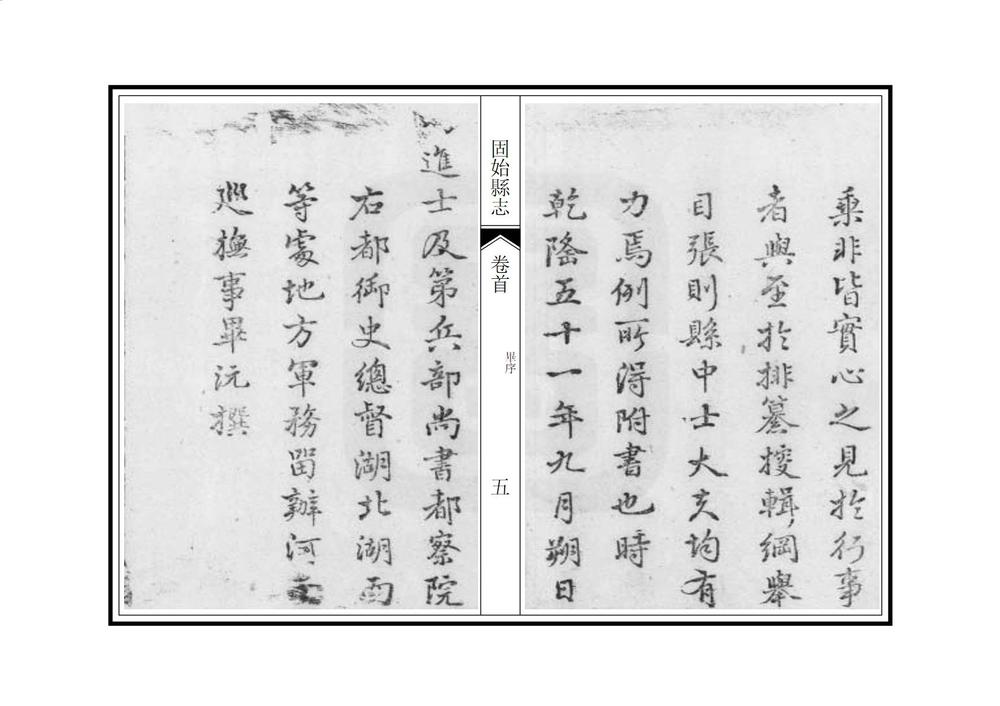 乗非皆實心之見於行事
者與至於排纂輯綱舉
目張則縣中士大夫均有
力焉例所得附書也時
乾隆五十一年九月朔日
固始縣志
卷首
畢序
五
進士及第兵部尚書都察院
右都御史總督湖北湖南
等處地方軍務畱辦河
巡撫事畢沅撰